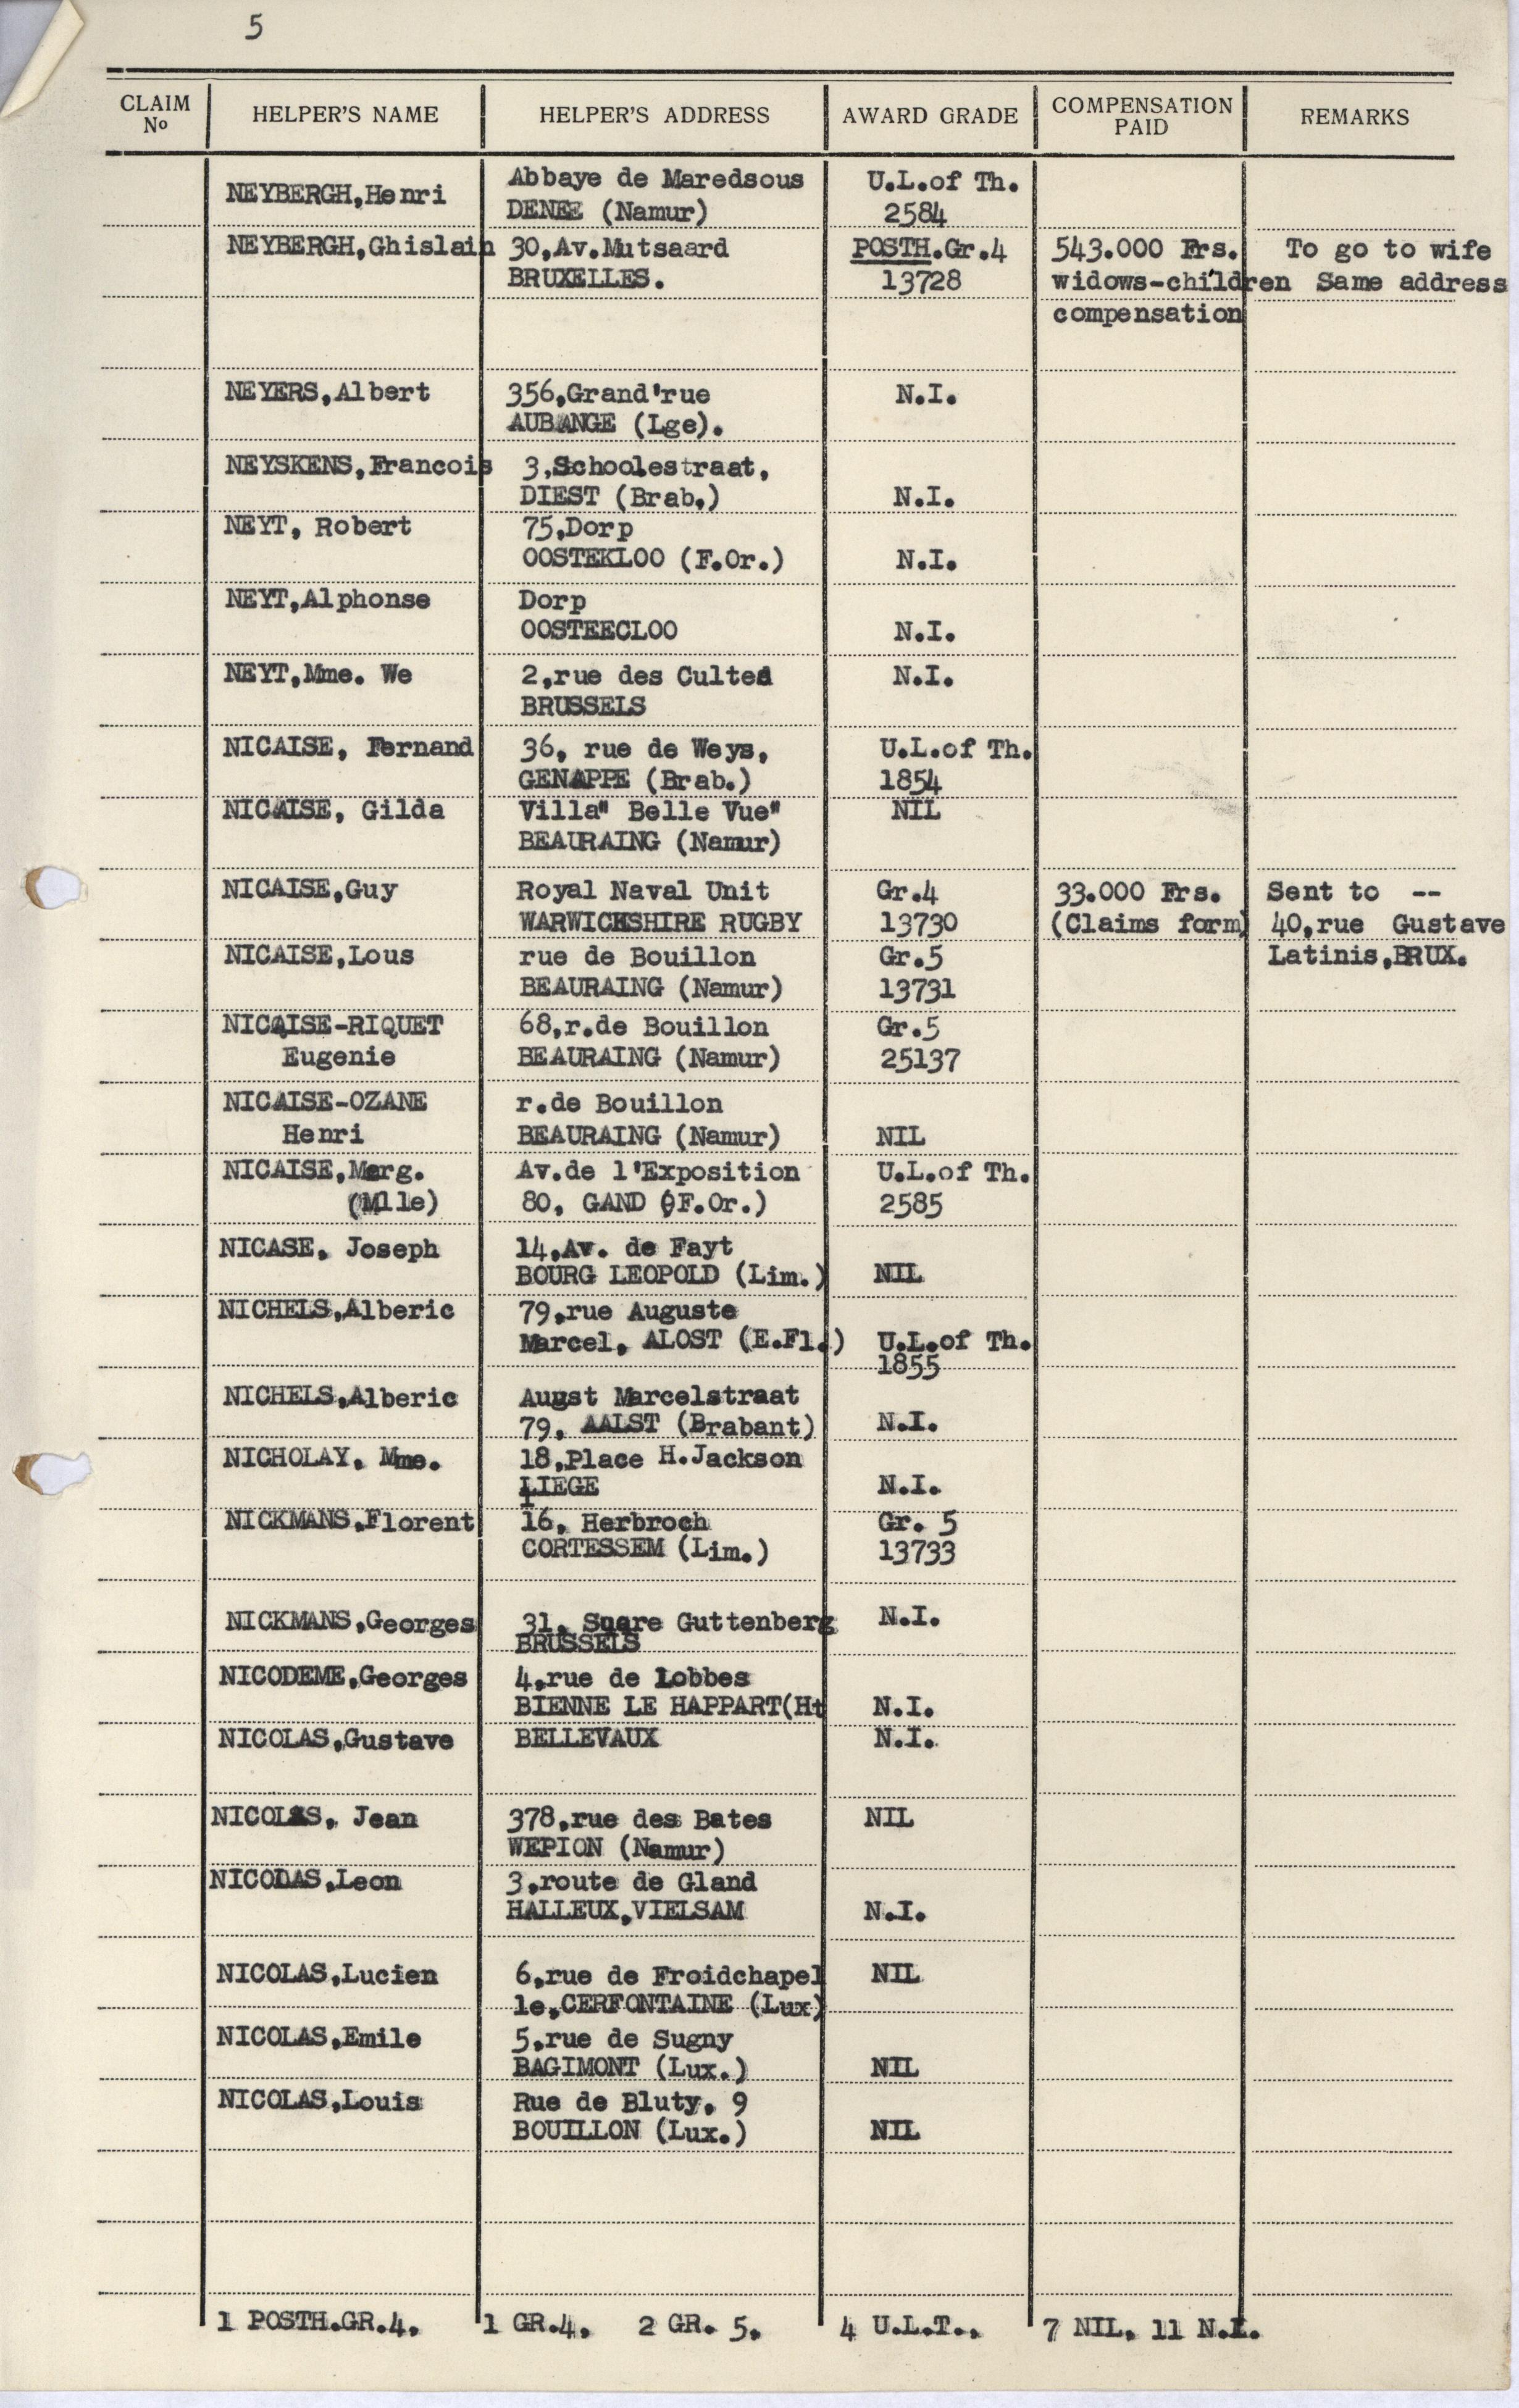 5
CLAIM No HELPER'S NAME HELPER'S ADDRESS AWARD GRADE COMPENSATION PAID REMARKS
NEYBERGH,Henri Abbaye de Maredsous U.L.of Th.
DENEE (Namur) 2584
NEYBERGH,Ghislain 30,Av.Mutsaard POSTH.Gr.4 543.000 Frs. To go to wife
BRUXELLES. 13728 widows-children Same address
compensation
NEYERS,Albert 356,Grand'rue N.I.
AUBANGE (Lge).
NEYSKENS,Francois 3,Schoolestraat,
DIEST (Brab.) N.I.
NEYT, Robert 75,Dorp
OOSTEKLOO (F.Or.) N.I.
NEYT,Alphonse Dorp
OOSTEECLOO N.I.
NEYT,Mme. We 2,rue des Cultes N.I.
BRUSSELS
NICAISE, Fernand 36, rue de Weys, U.L.of Th.
GENAPPE (Brab.) 1854
NICAISE, Gilda Villa" Belle Vue" NIL
BEAURAING (Namur)
NICAISE,Guy Royal Naval Unit Gr.4 33.000 Frs. Sent to --
WARWICKSHIRE RUGBY 13730 (Claims form) 40,rue Gustave
NICAISE,Lous rue de Bouillon Gr.5 Latinis,BRUX.
BEAURAING (Namur) 13731
NICAISE-RIQUET 68,r.de Bouillon Gr.5
Eugenie BEAURAING (Namur) 25137
NICAISE-OZANE r.de Bouillon
Henri BEAURAING (Namur) NIL
NICAISE,Marg. Av.de l'Exposition U.L.of Th.
(Mlle) 80, GAND (F.Or.) 2585
NICASE, Joseph 14,Av. de Fayt
BOURG LEOPOLD (Lim.) NIL
NICHELS,Alberic 79,rue Auguste
Marcel, ALOST (E.Fl.) U.L.of Th.
1855
NICHELS,Alberic Augst Marcelstraat
79, AALST (Brabant) N.I.
NICHOLAY, Mme. 18,Place H.Jackson
LIEGE N.I.
NICKMANS,Florent 16, Herbroch Gr. 5
CORTESSEM (Lim.) 13733
NICKMANS,Georges 31, Suare Guttenberg N.I.
BRUSSELS
NICODEME,Georges 4,rue de Lobbes
BIENNE LE HAPPART(Ht N.I.
NICOLAS,Gustave BELLEVAUX N.I.
NICOLAS, Jean 378,rue des Bates NIL
WEPION (Namur)
NICODAS,Leon 3,route de Gland
HALLEUX,VIELSAM N.I.
NICOLAS,Lucien 6,rue de Froidchapel NIL
le,CERFONTAINE (Lux)
NICOLAS,Emile 5,rue de Sugny
BAGIMONT (Lux.) NIL
NICOLAS,Louis Rue de Bluty, 9
BOUILLON (Lux.) NIL
1 POSTH.GR.4, 1 GR.4, 2 GR. 5, 4 U.L.T., 7 NIL, 11 N.I.